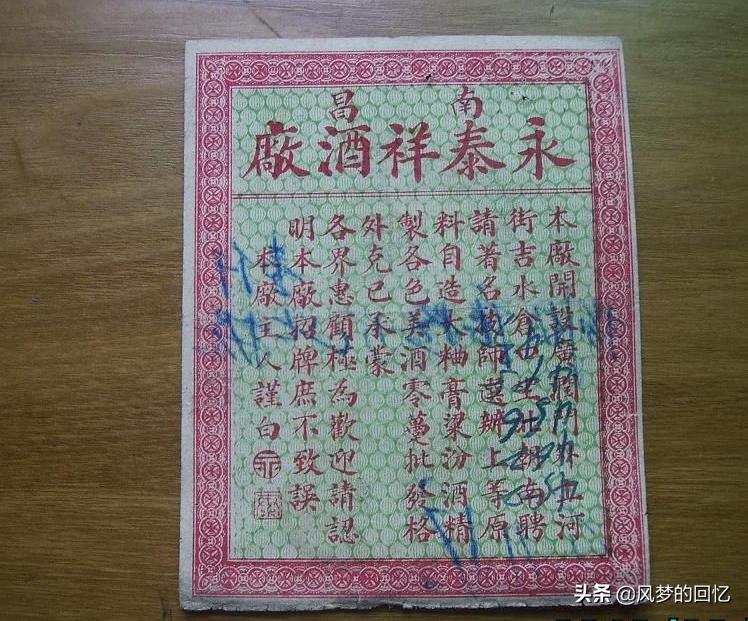 南昌
永泰祥酒廠
本廠開設廣潤門外直河
街吉水倉出坐北朝南聘
請著名技師選辦上等原
料自造大粬膏粱汾酒精
製各色美酒零躉批發格
外克已承蒙
各界惠顧極為歡迎請認
明本廠招牌庶不致誤
本廠主人謹白
头条 @风梦的回忆